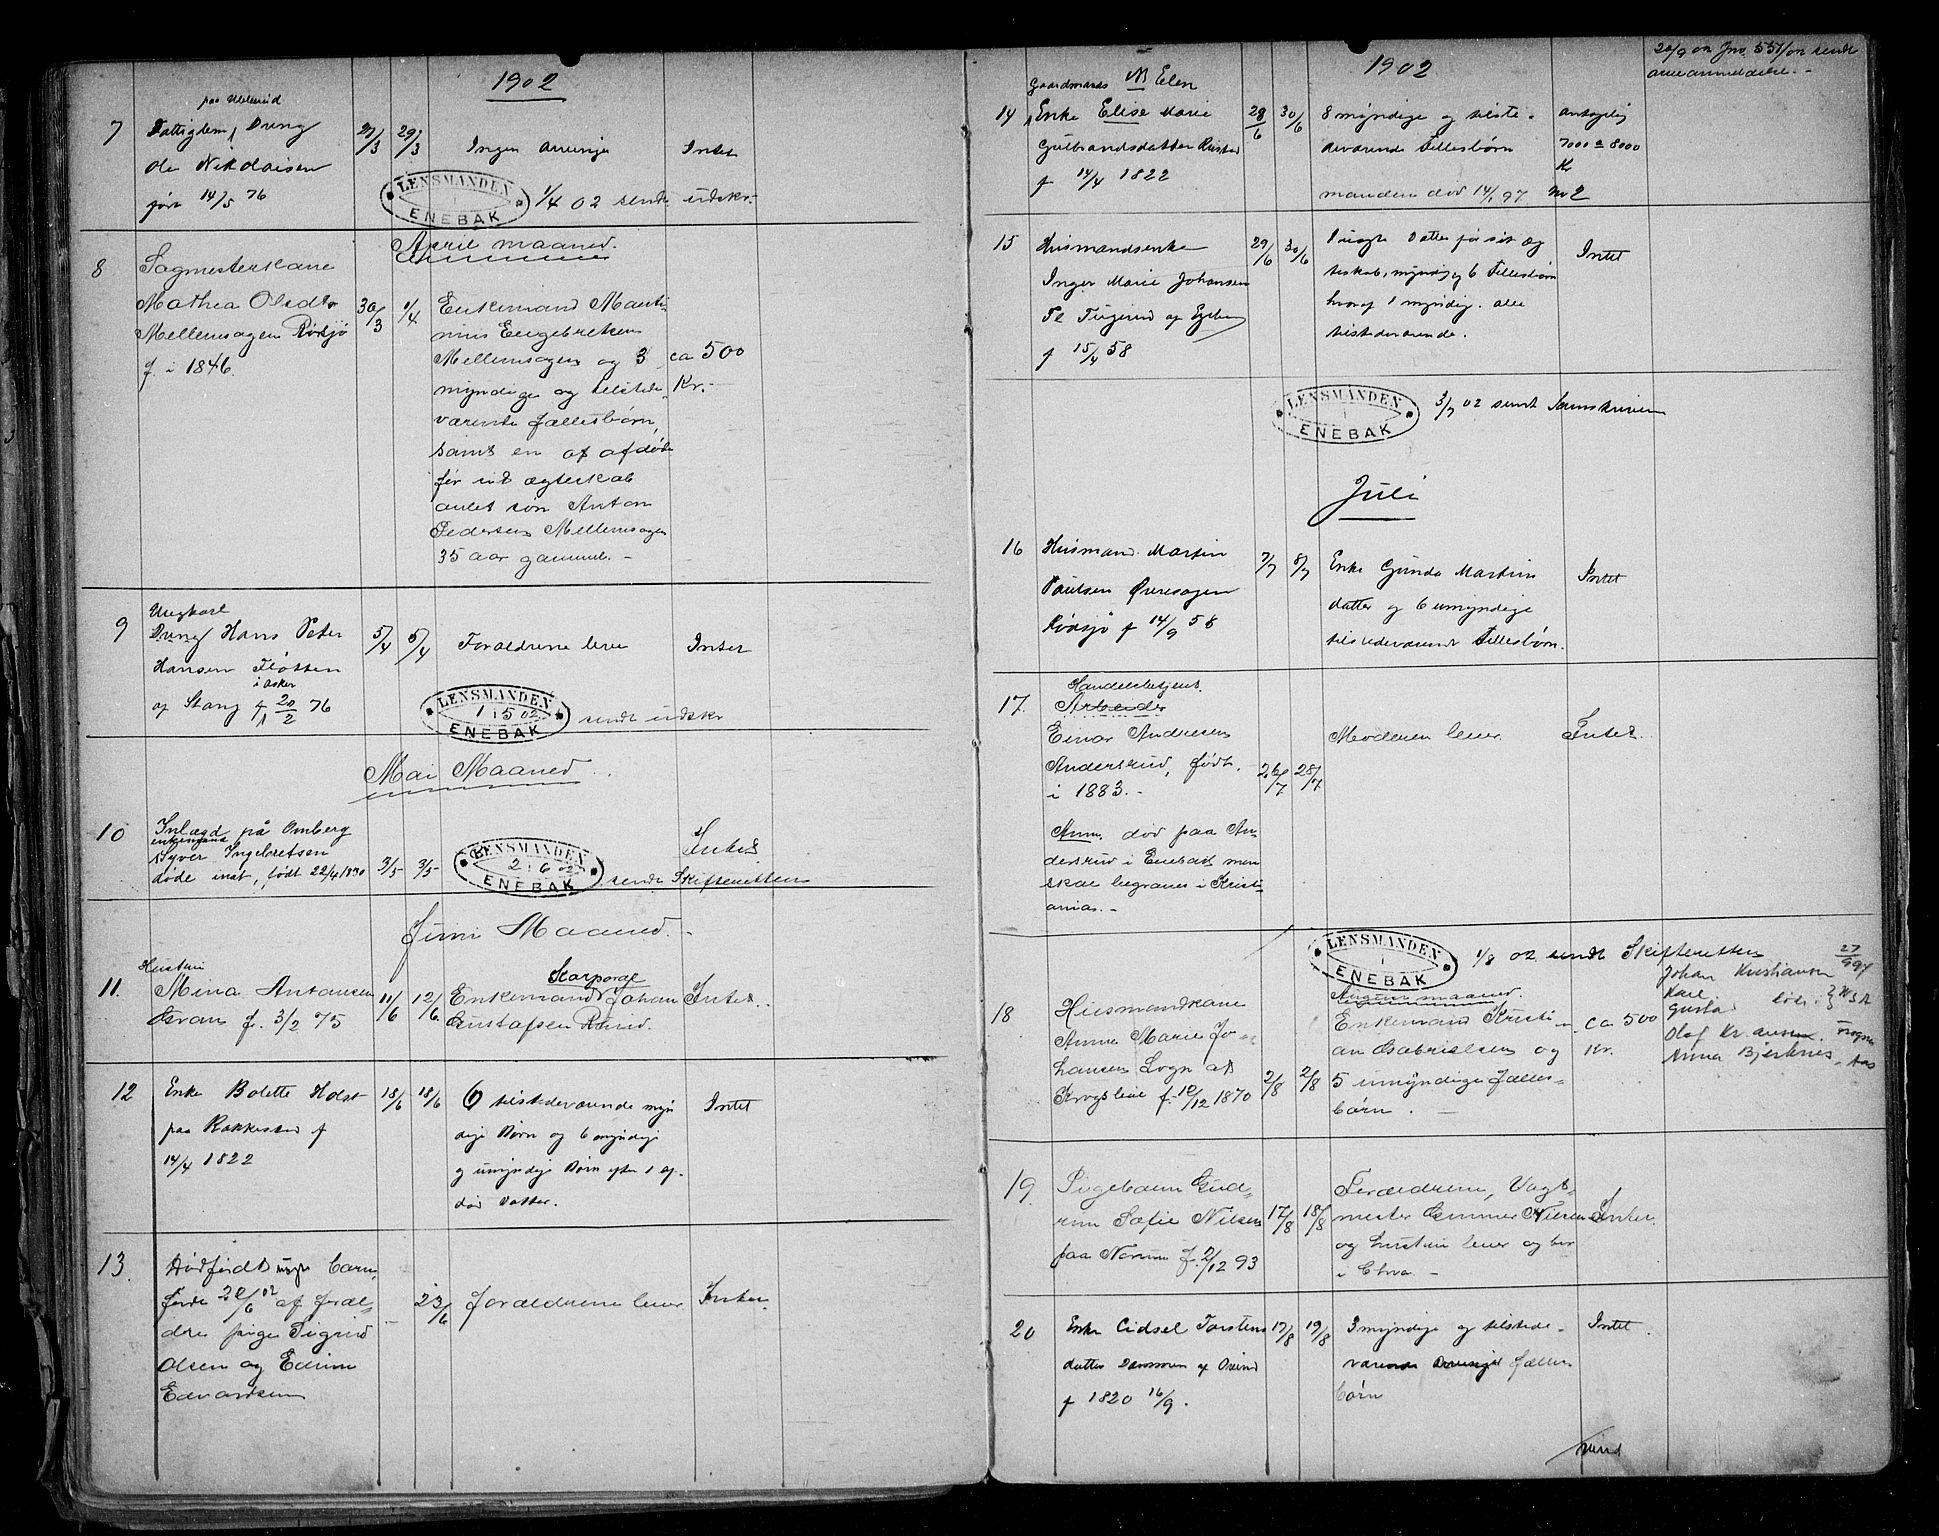 1902
paa
7 Fattiglem, Dreng 27/3 29/3 Ingen arvinge Intet
Ole Nikolaisen
født 14/5 76
LENSMANDEN
i
ENEBAK
1/4 02 sendt udskr.
April maaned.
8 Sagmesterkone
Mathea Olsdtr 30/3 1/4 Enkemand Marti-
Mellemsagen Rødsjø nius Engebretsen
f. i 1846. Mellemsagen og 3 ca 500
myndige og tilstede- Kr.-
værende fællesbørn,
samt en af afdøde
før sit ægteskab
avlet søn Anton
Pedersen Mellemsagen
35 aar gammel. -
Ungkarl
9 Dreng Hans Peter 5/4 5/4 Forældrene leve Intet
Hansen Fløtten
i Asker
af Stang f 20/2 76
LENSMANDEN
1 i 5 02
ENEBAK
sendt udskr
Mai Maaned
10 Inlægd på Omberg Intet.
enkemand
Syver Ingebretsen
døde inat, født 22/4 1830 3/5 3/5
LENSMANDEN
2 i 6 02
ENEBAK
sendt Skifteretten
Juni Maaned.
Hustru
11. Mina Antonsen 11/6 12/6 Enkemand Johan Intet.
Gran f. 3/2 75 Gustafsen
12 Enke Bolette Holst 18/6 18/6 6 tilstedeværende myn Intet
paa Rakkestad f dige Børn og 6 myndige
14/4 1822 og umyndige Børn efter 1 af-
død Datter.
13. Dødfødt uægte barn,
fødte 20/6 02 af foræl- - 23/6 forældrene lever Intet.
dre pige Sigrid
Olsen og Edvin
Edvardsen
1902
20/9 02 Jno. 551/02 sendt
arveanmeldelse. -
Gaardmands NB Elen
14 Enke Elise Marie 28/6 30/6 8 myndige og tilste- antagelig
Gulbrandsdatter deværende Fællesbørn 7000 a 8000
f 14/4 1822 Kr
manden død 14/1 97. No 2
15 Husmandsenke 29/6 30/6 1 uægte Datter før sit Æg Intet
Inger Marie Johansen teskab, myndig og 6 Fællesbørn
hvoraf 1 myndig. alle
f 15/4 58 tilstedeværende.
LENSMANDEN
i
ENEBAK
3/7 02 sendt Sorenskriveren
Juli
16 Husmand Martin 7/7 8/7 Enke Gunda Martins Intet
Paulsen Øvresagen datter og 6 umyndige
Rødsjø f 14/9 58 tilstedeværende Fællesbørn.
Handelsbetjent.
17. Arbeider
Einar Andresen Moderen lever. Intet.
Anderskrud, født. 26/7 28/7
i 1883. -
Anm. død paa An-
derskrud i Enebak men
skal begraves i Kristi-
ania. -
LENSMANDEN
i
ENEBAK
1/8 02 sendt Skifteretten
August maaned.
18 Husmandskone Enkemand Kristi- ca 500
Anne Marie Jo- an Gabrielsen og Kr.
hansen Sogn af 2/8 2/8 5 umyndige fælles-
Krogsleie f. 10/12 1870 børn. -
Johan Kristiansen
Karl
Gustav
Olaf
Anna Bjerknes
19 Pigebarn Gud- Forældrene, Vagt-
run Sofie Nilsen 17/8 18/8 mester Gunner Nilsen Intet.
paa Norum f. 2/12 93 og hustru lever og bor
i Chra. -
20 Enke Cidsel Torstens 17/8 19/8 3 myndige og tilstede- Intet.
datter værende fælles
f 1820 16/9. børn